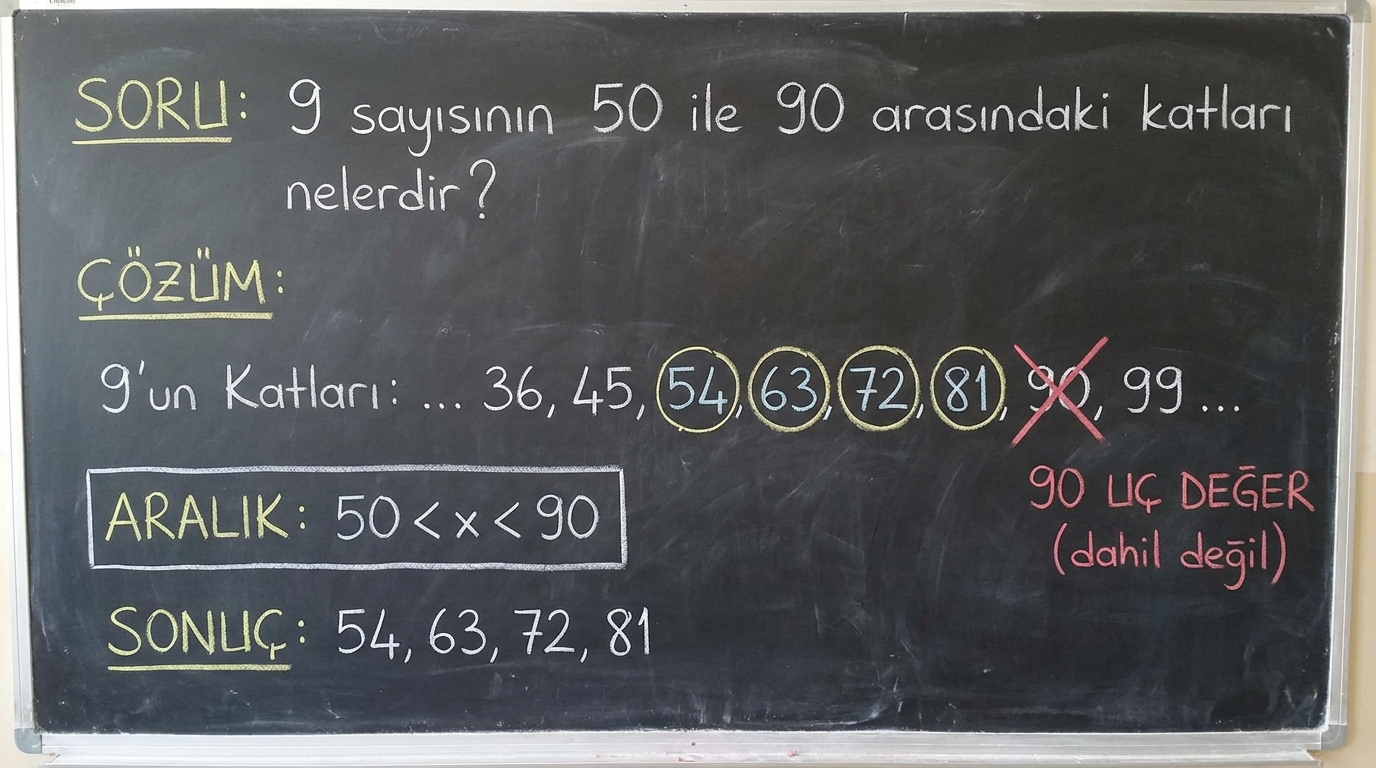 SORU: 9 sayısının 50 ile 90 arasındaki katları
nelerdir?
ÇÖZÜM:
9'un Katları: ... 36, 45, 54, 63, 72, 81, 90, 99 ...
90 UÇ DEĞER
(dahil değil)
ARALIK: 50 < x < 90
SONUÇ: 54, 63, 72, 81